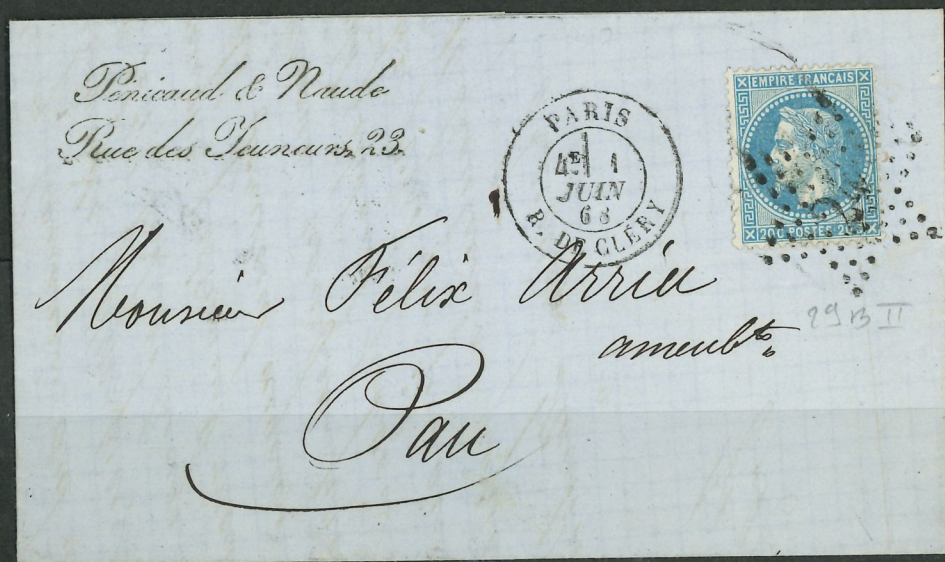 Pénicaud & Naude
Rue des Jeuneurs, 23.
PARIS
4E 1
JUIN
68
R. DE CLÉRY
EMPIRE FRANCAIS
20C POSTES 20C
Monsieur Félix Arrieu
ameubts
Pau
29B II